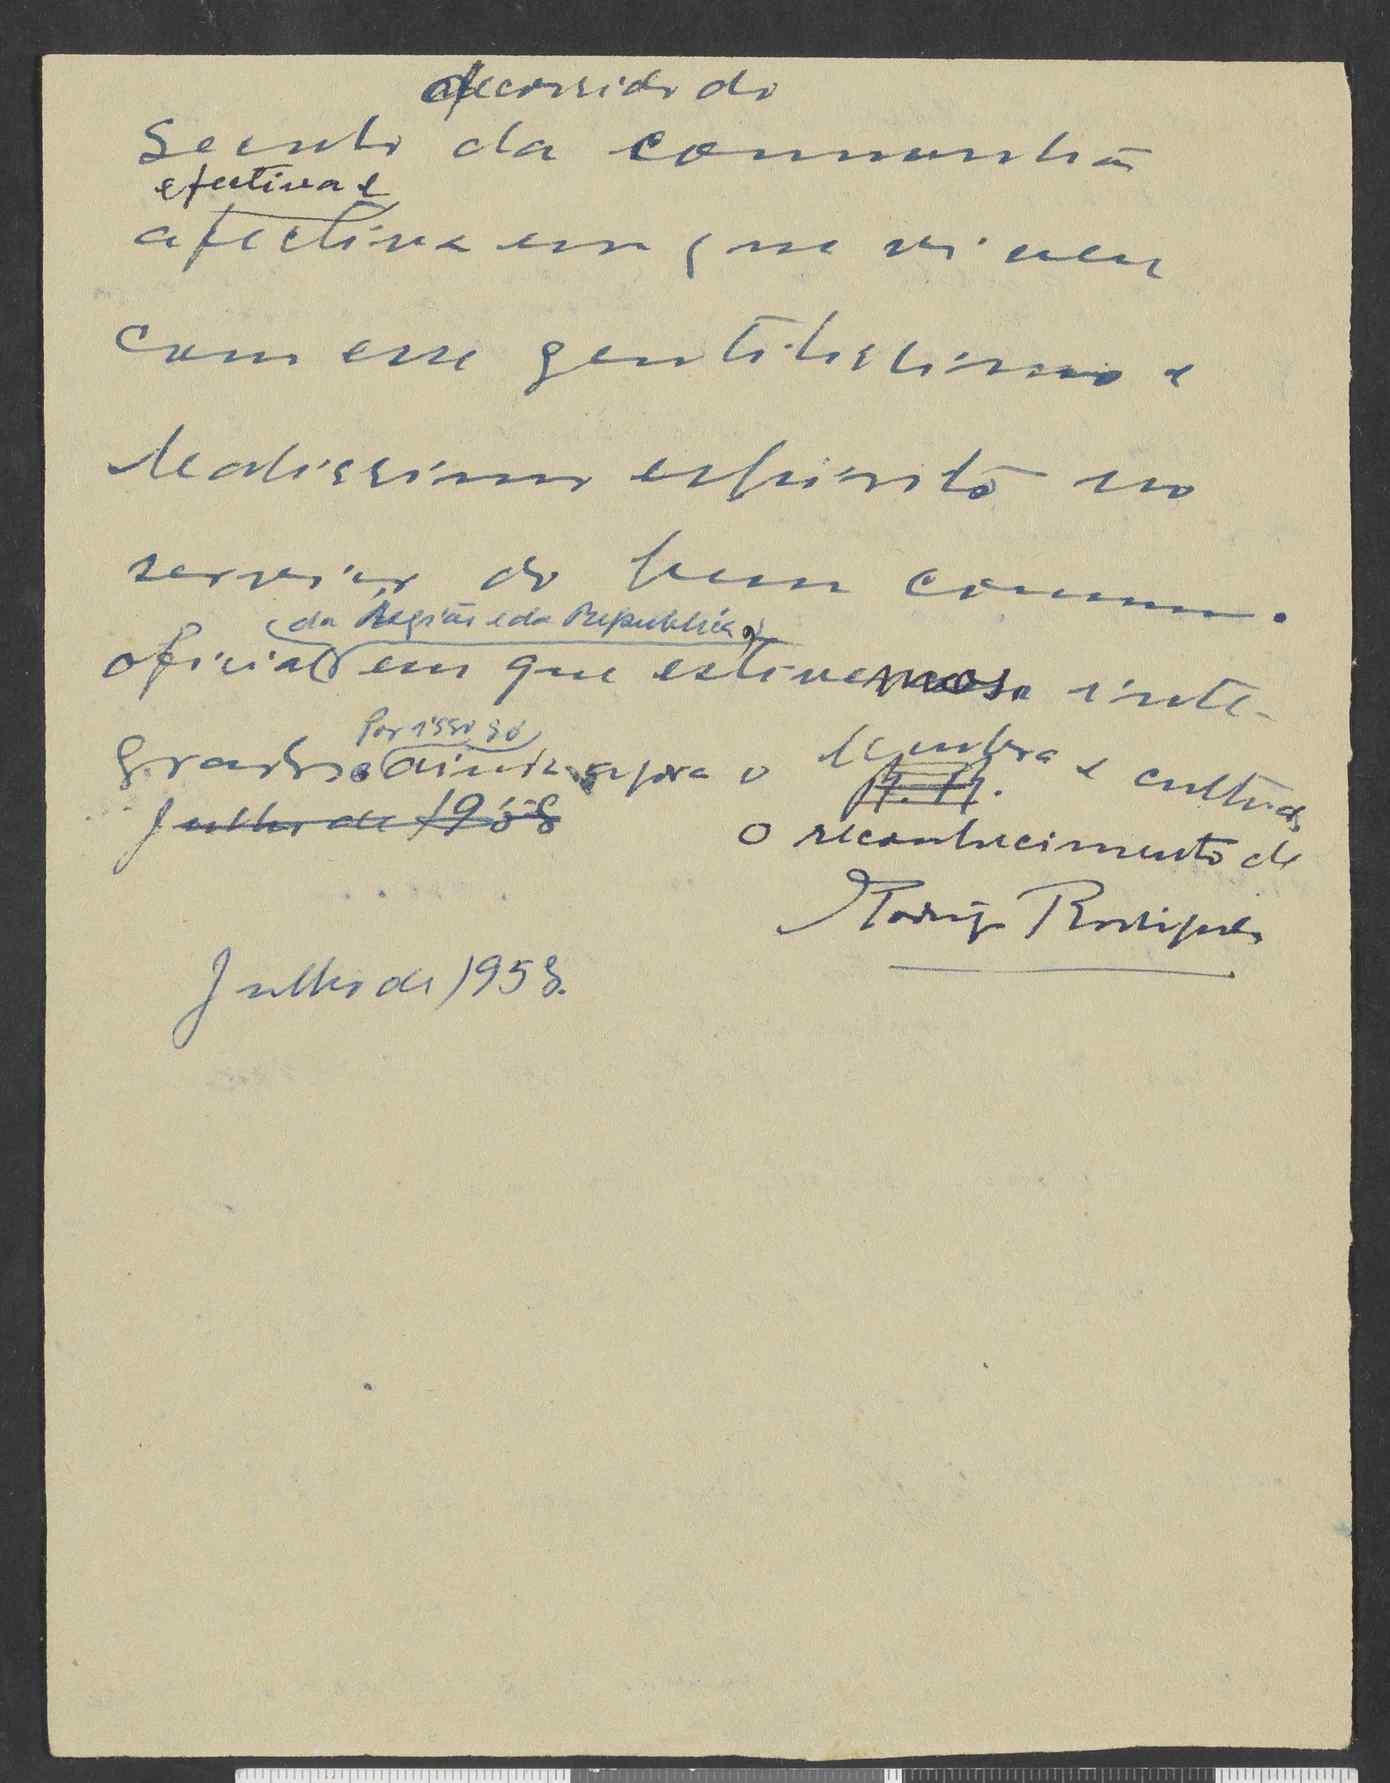 decorrido do
seculo da communhão
efectiva e
afectiva em que vi viver
com esse gentilissimo e
lealissimo espirito no
serviço do bem comum.
da Região e da Republica
oficial em que estivemos inte-
Por isso só
grados. ainda agora o lembra e cultua,
Julho de 1958
M. M.
o reconhecimento de
Rodrigo Rodrigues
Julho de 1958.